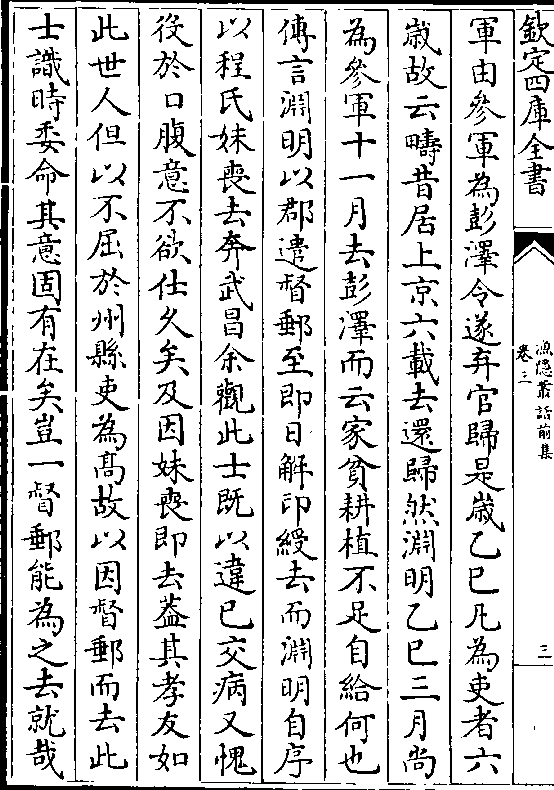 欽定四庫全書
漁隱叢話前集
卷三
三
軍由參軍為彭澤令遂弃官歸是歲乙巳凡為吏者六
歲故云疇昔居上京六載去還歸然淵明乙巳三月尚
為參軍十一月去彭澤而云家貧耕植不足自給何也
傳言淵明以郡遣督郵至即日解印綬去而淵明自序
以程氏妹喪去奔武昌余觀此士既以違已交病又愧
役於口腹意不欲仕久矣及因妹喪即去葢其孝友如
此世人但以不屈於州縣吏為髙故以因督郵而去此
士識時委命其意固有在矣豈一督郵能為之去就哉